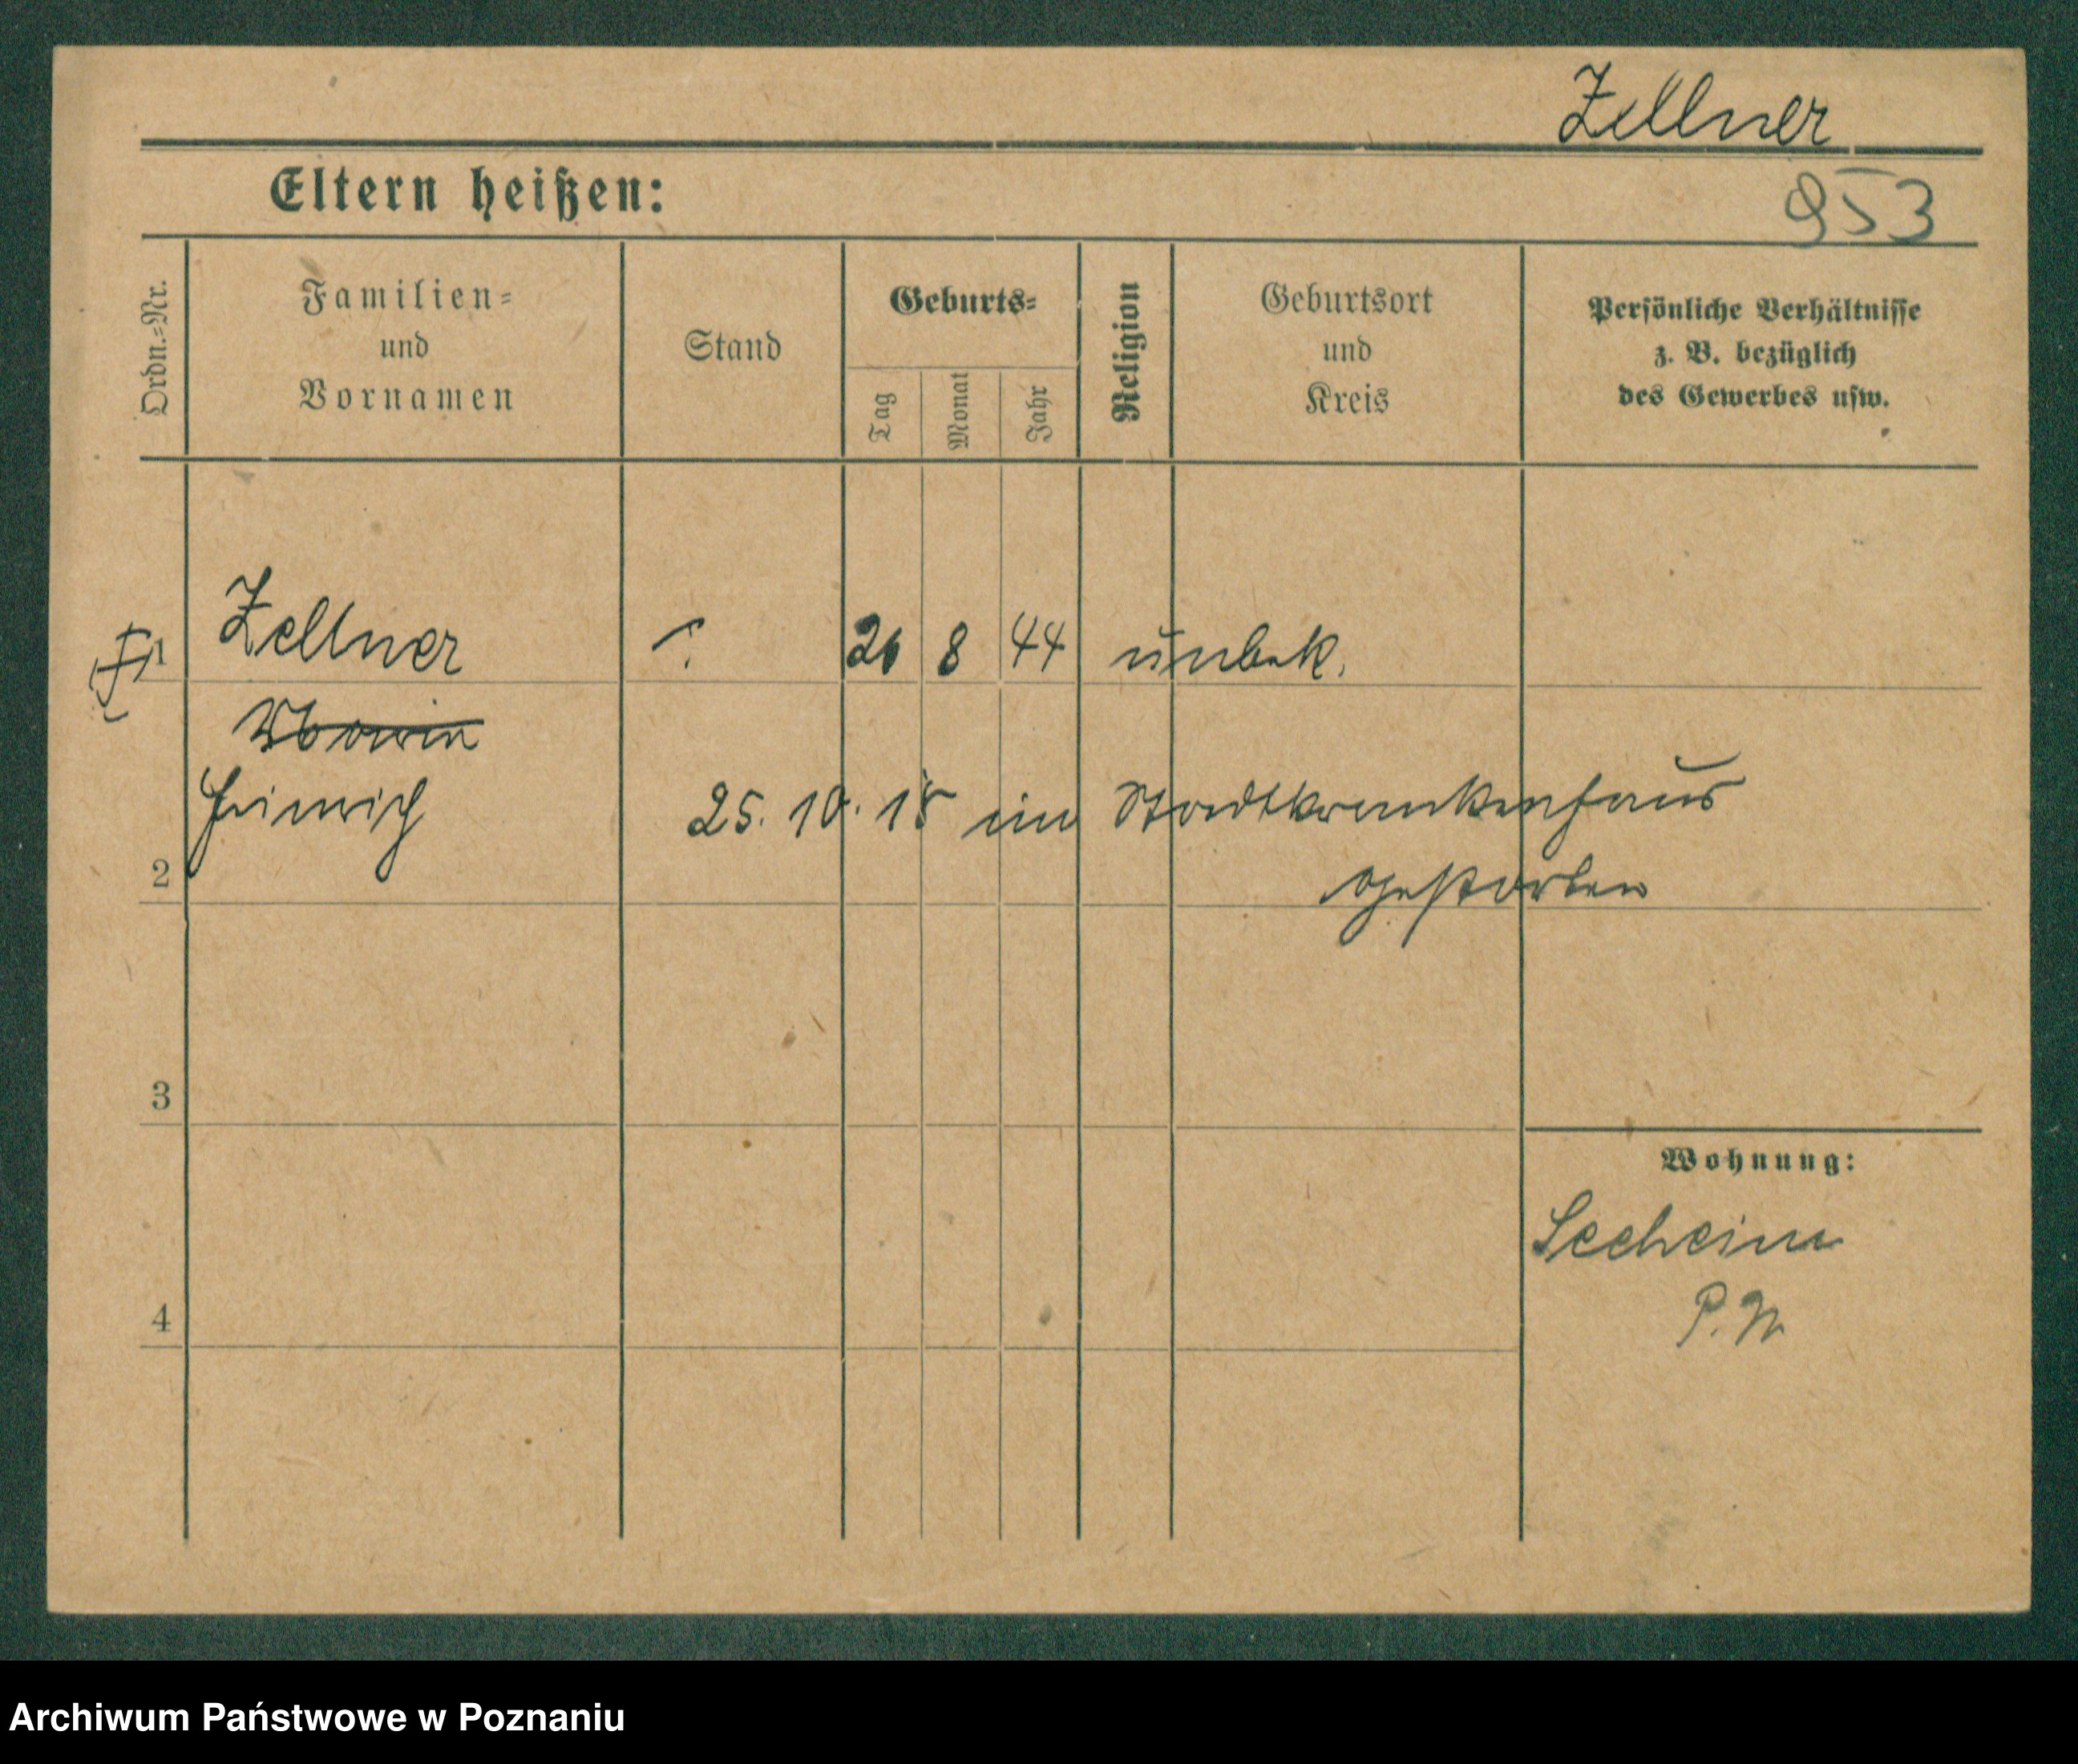 Zellner
Eltern heißen:
953
Ordn.-Nr.
Familien-
und
Vornamen
Stand
Geburts-
Tag
Monat
Jahr
Religion
Geburtsort
und
Kreis
Persönliche Verhältnisse
z. B. bezüglich
des Gewerbes usw.
1 Zellner ? 26 8 44 unbek.
Heinrich 25. 10. 18 im Stadtkrankenhaus
2 gestorben
3
Wohnung:
Seeheim
4 P. W
Archiwum Państwowe w Poznaniu